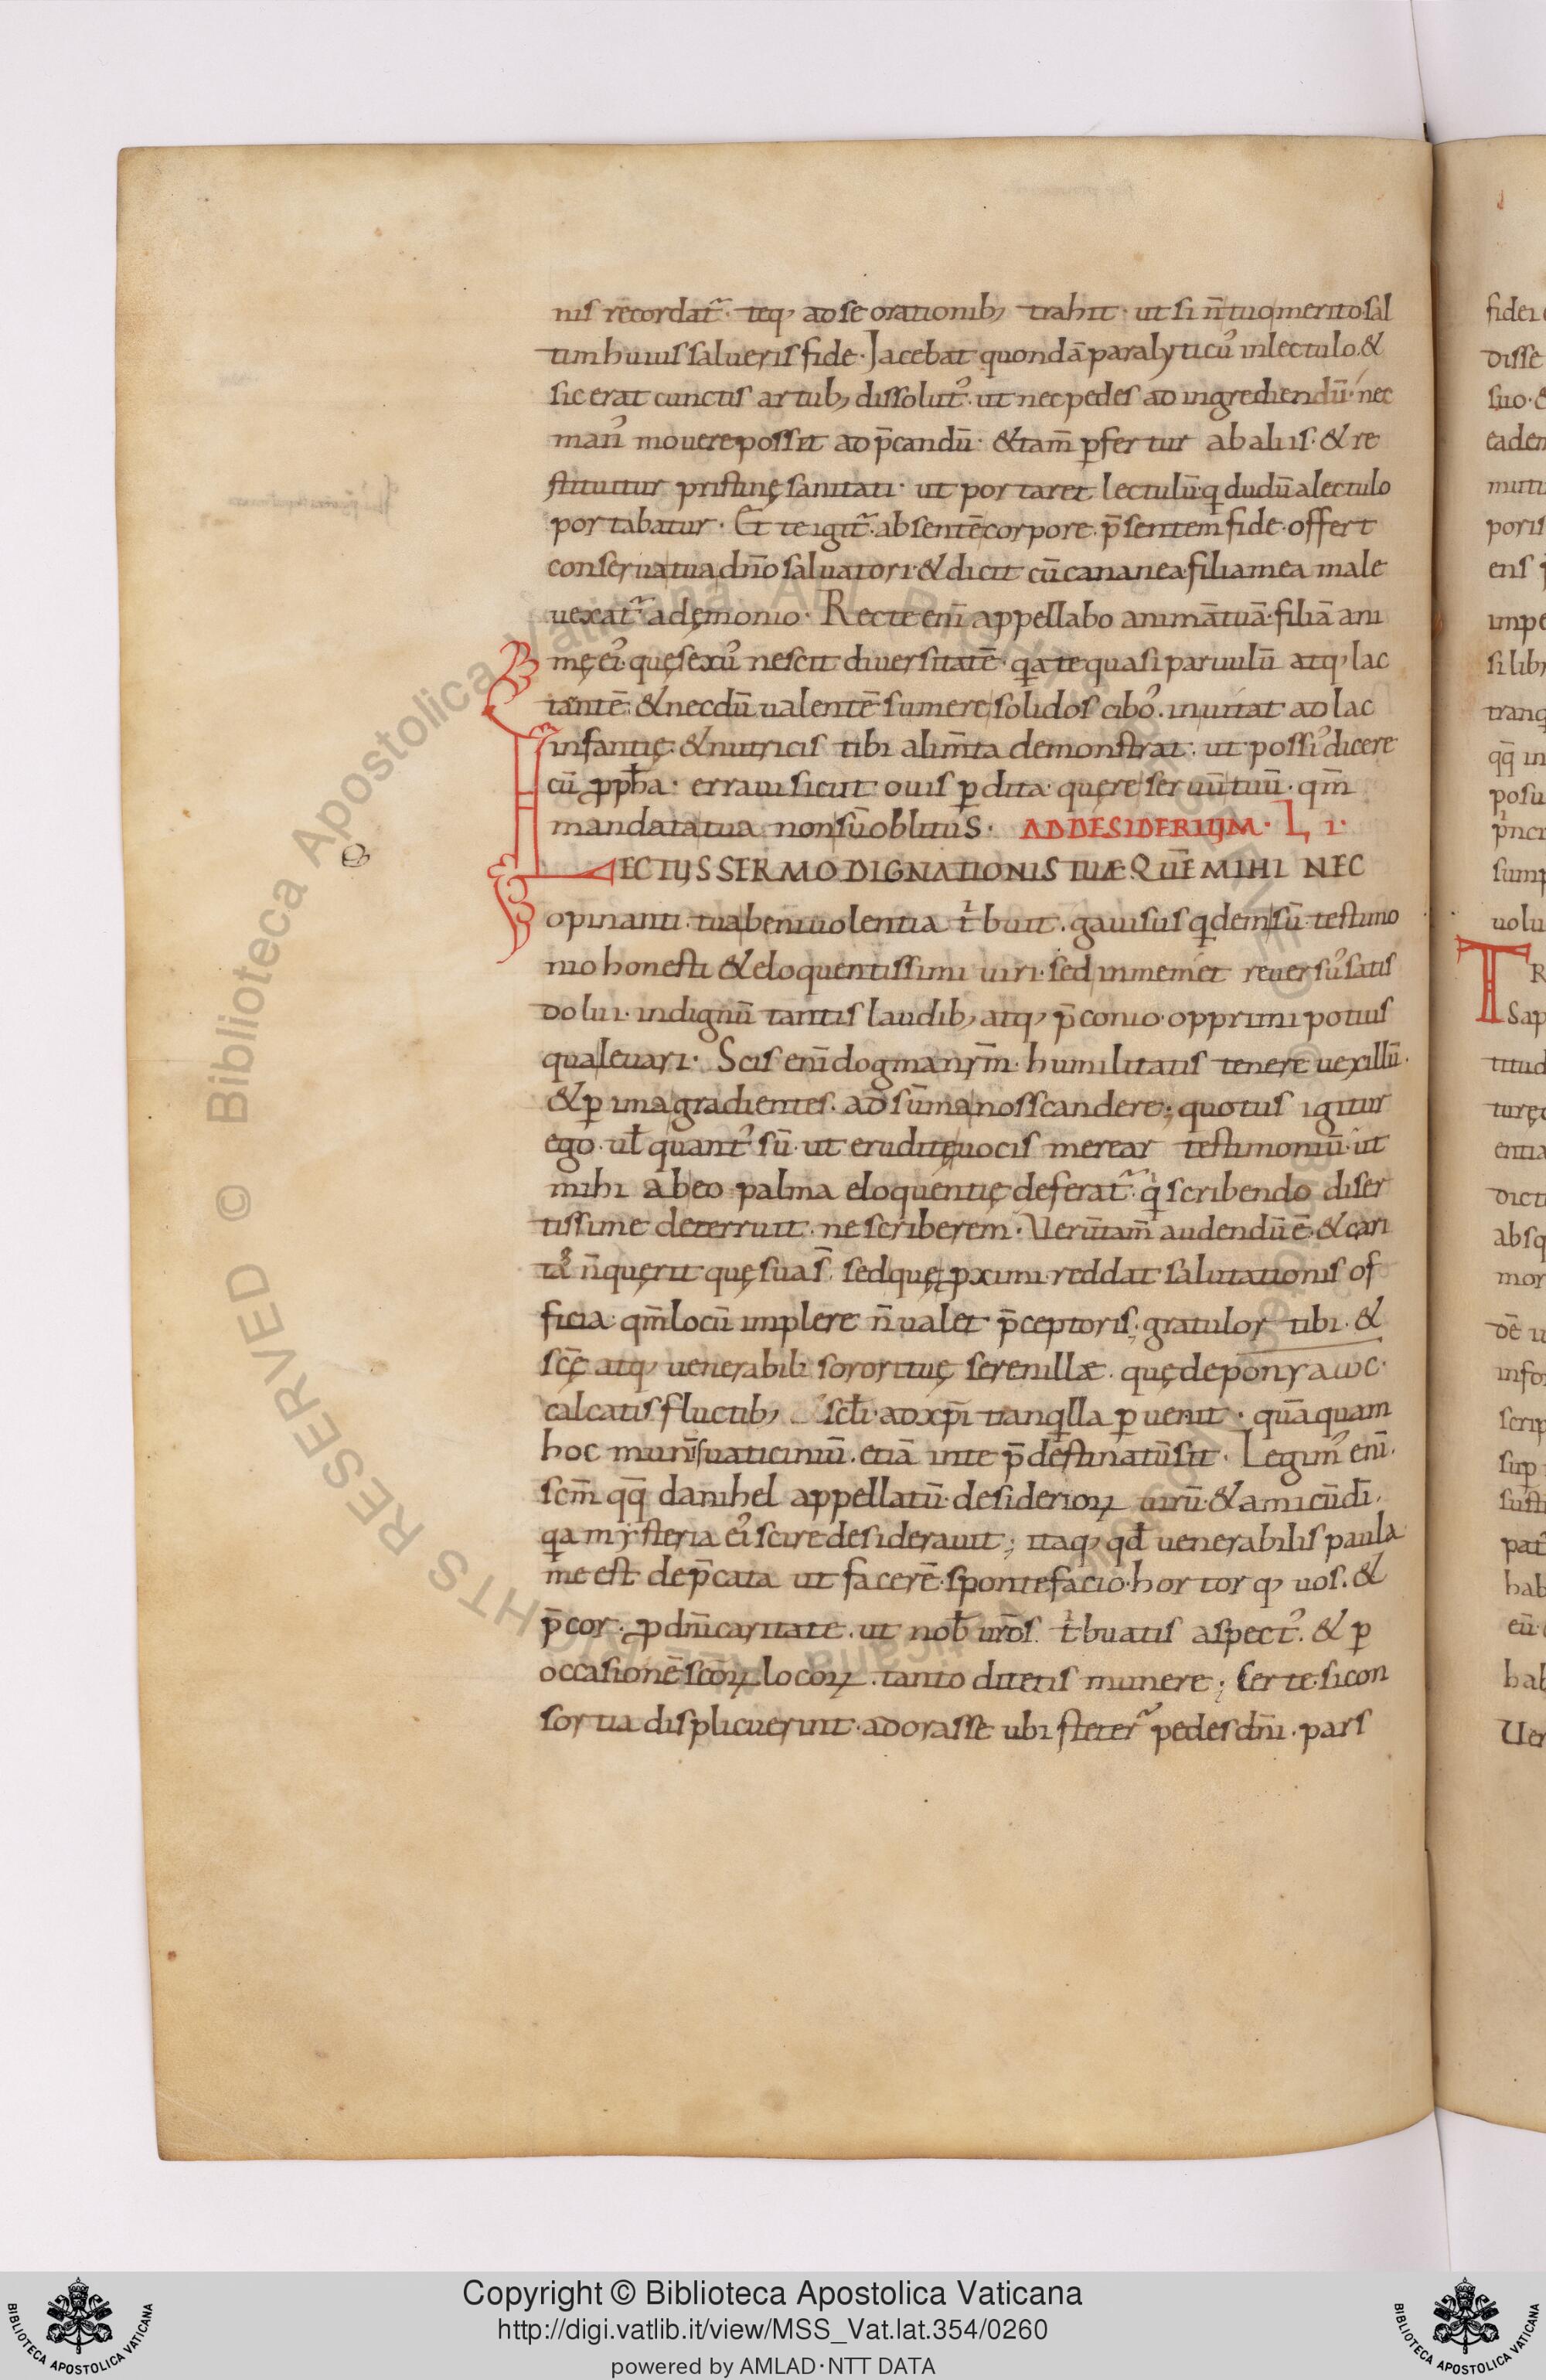 nis recordat᷑. teq; ad se orationib; trahit. ut si n̄ tuo merito sal
tim huius salueris fide. Jacebat quondā paralyticꝰ in lectulo. &
sic erat cunctis artub; dissolutꝰ. ut nec pedes ad ingrediendū. nec
manꝰ mouere possit ad p̄candū. & tam̄ ꝑfertur ab aliis. & re
stituitur pristinę sanitati. ut portaret lectulū. q dudū a lectulo
portabatur. Et te igit᷑. absentē corpore. p̄sentem fide. offert
conserua tua dn̄o saluatori. & dicit cū cananea. filia mea male
uexat᷑ a dęmonio. Recte eni̅ appellabo animā tuā. filiā ani
mę eiꝰ. quę sexꝰ nescit diuersitatē. qa te quasi paruulū atq; lac
tantē. & necdū ualentē sumere solidos cibos. inuitat ad lac
infantię. & nutricis tibi alim̄ta demonstrat. ut possiꝰ dicere
cū ꝓph̄a. erraui sicut ouis ꝑdita. quęre seruū tuū. qm̄
mandata tua non sū oblitus. AD DESIDERIUM. L I.
LECTUS SERMO DIGNATIONIS TUÆ. QUĒ MIHI NEC
opinanti. tua beniuolentia tⁱbuit. gauisus qdem sū testimo
nio honesti & eloquentissimi uiri. sed in memet reuersꝰ satis
dolui. indignū tantis laudib; atq; p̄conio. opprimi potius
qua leuari. Scis eni̅ dogma nr̄m. humilitatis tenere uexillū.
& ꝑ ima gradientes. ad sūma nos scandere; quotus igitur
ego. ul̄ quantꝰ sū. ut eruditę uocis merear testimoniū. ut
mihi ab eo palma eloquentię deferat᷑. qⁱ scribendo diser
tissime deterruit. ne scriberem. Uerūtam̄ audendū ē. & cari
tas n̄ quęrit quę sua s̄. sed quę ꝓximi. reddat salutationis of
ficia. qm̄ locū implere n̄ ualet p̄ceptoris. gratulor tibi. &
sc̄ę atq; uenerabili sorori tuę serenillæ. quę
calcatis fluctib; scl̄i. ad xp̄i tranqlla ꝑuenit. quāquam
hoc uaticiniū. etiā in te p̄destinatū sit. Legimꝰ eni̅.
sc̄m qq̄ danihel appellatū desiderioꝝ uirū. & amicū di̅.
qa mysteria eiꝰ scire desiderauit; itaq; qd̄ uenerabilis paula
me est dep̄cata ut facerē. sponte facio. hortorq; uos. &
p̄cor. ꝓ dn̄i caritate. ut nob̄ ur̄os tⁱbuatis aspectꝰ. & ꝑ
occasionē sc̄oꝝ locoꝝ. tanto ditetis munere; Certe. si con
sortia displicuerint. adorasse ubi steter᷑ pedes dn̄i. pars
Copyright © Biblioteca Apostolica Vaticana
http://digi.vatlib.it/view/MSS_Vat.lat.354/0260
powered by AMLAD·NTT DATA